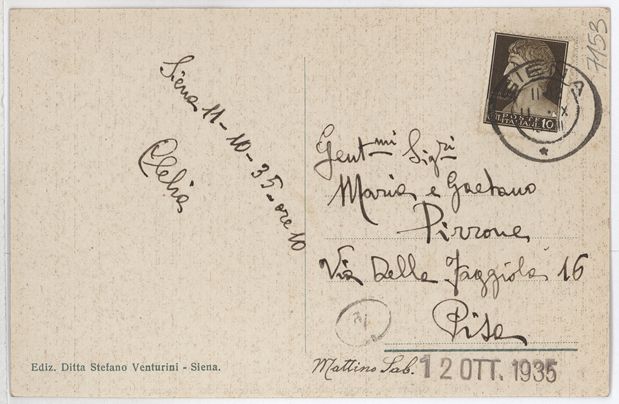 Siena 11-10-35-ore 10
Clelia
7153
SIENA
POSTE
ITALIANE 10
Gent.mi Sig.ri
Maria e Gaetano
Pirrone
Via Della Faggiola 16
Pisa
Mattino Sab. 12 OTT. 1935
Ediz. Ditta Stefano Venturini - Siena.